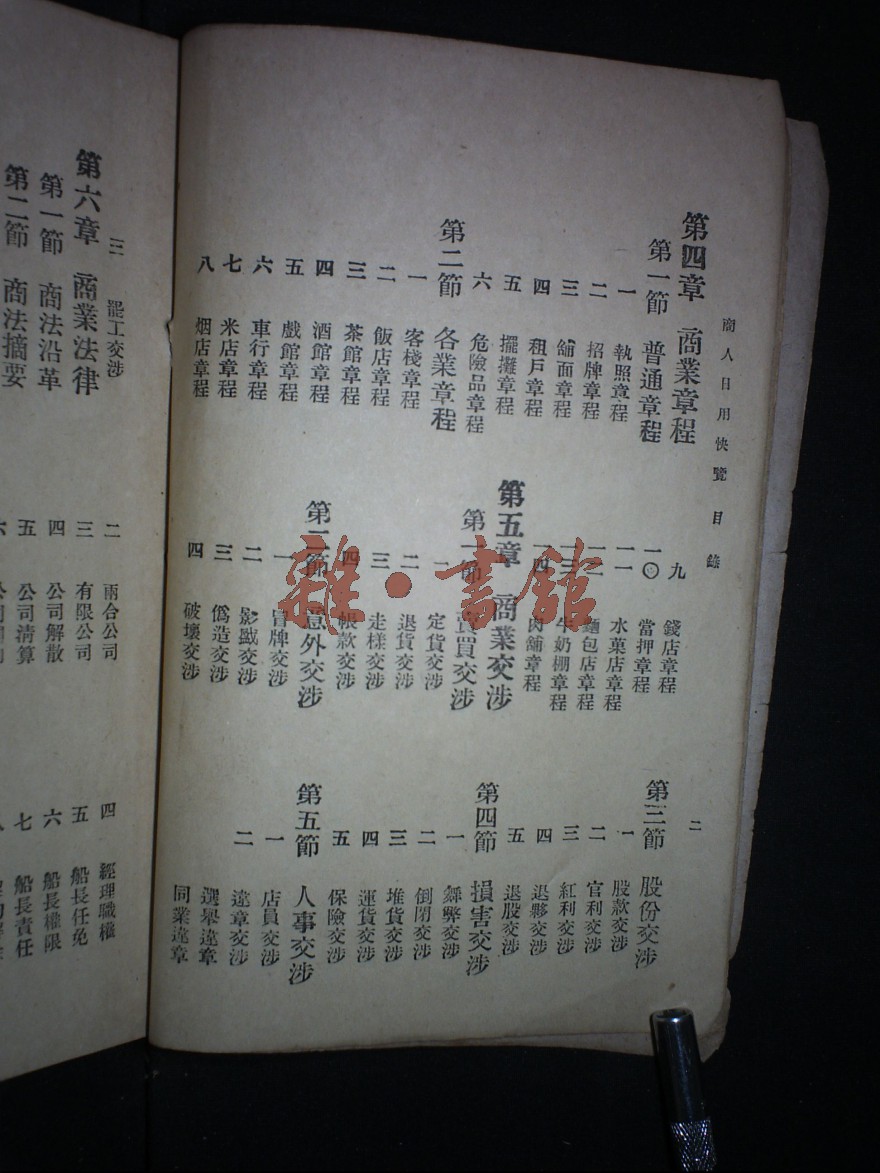 商人日用快覽 目錄
二
第四章 商業章程
第一節 普通章程
一 執照章程
二 招牌章程
三 舖面章程
四 租戶章程
五 擺攤章程
六 危險品章程
第二節 各業章程
一 客棧章程
二 飯店章程
三 茶館章程
四 酒館章程
五 戲館章程
六 車行章程
七 米店章程
八 烟店章程
九 錢店章程
一〇 當押章程
一一 水菓店章程
一二 麵包店章程
一三 牛奶棚章程
一四 肉舖章程
第五章 商業交涉
第一節 賣買交涉
一 定貨交涉
二 退貨交涉
三 走樣交涉
四 帳款交涉
第二節 意外交涉
一 冒牌交涉
二 影戤交涉
三 僞造交涉
四 破壞交涉
第三節 股份交涉
一 股款交涉
二 官利交涉
三 紅利交涉
四 退夥交涉
五 退股交涉
第四節 損害交涉
一 舞弊交涉
二 倒閉交涉
三 堆貨交涉
四 運貨交涉
五 保險交涉
第五節 人事交涉
一 店員交涉
二 違章交涉
選舉違章
同業違章
三 罷工交涉
第六章 商業法律
第一節 商法沿革
第二節 商法摘要
二 兩合公司
三 有限公司
四 公司解散
五 公司清算
六
四 經理職權
五 船長任免
六 船長權限
七 船長責任
八
雜·書館